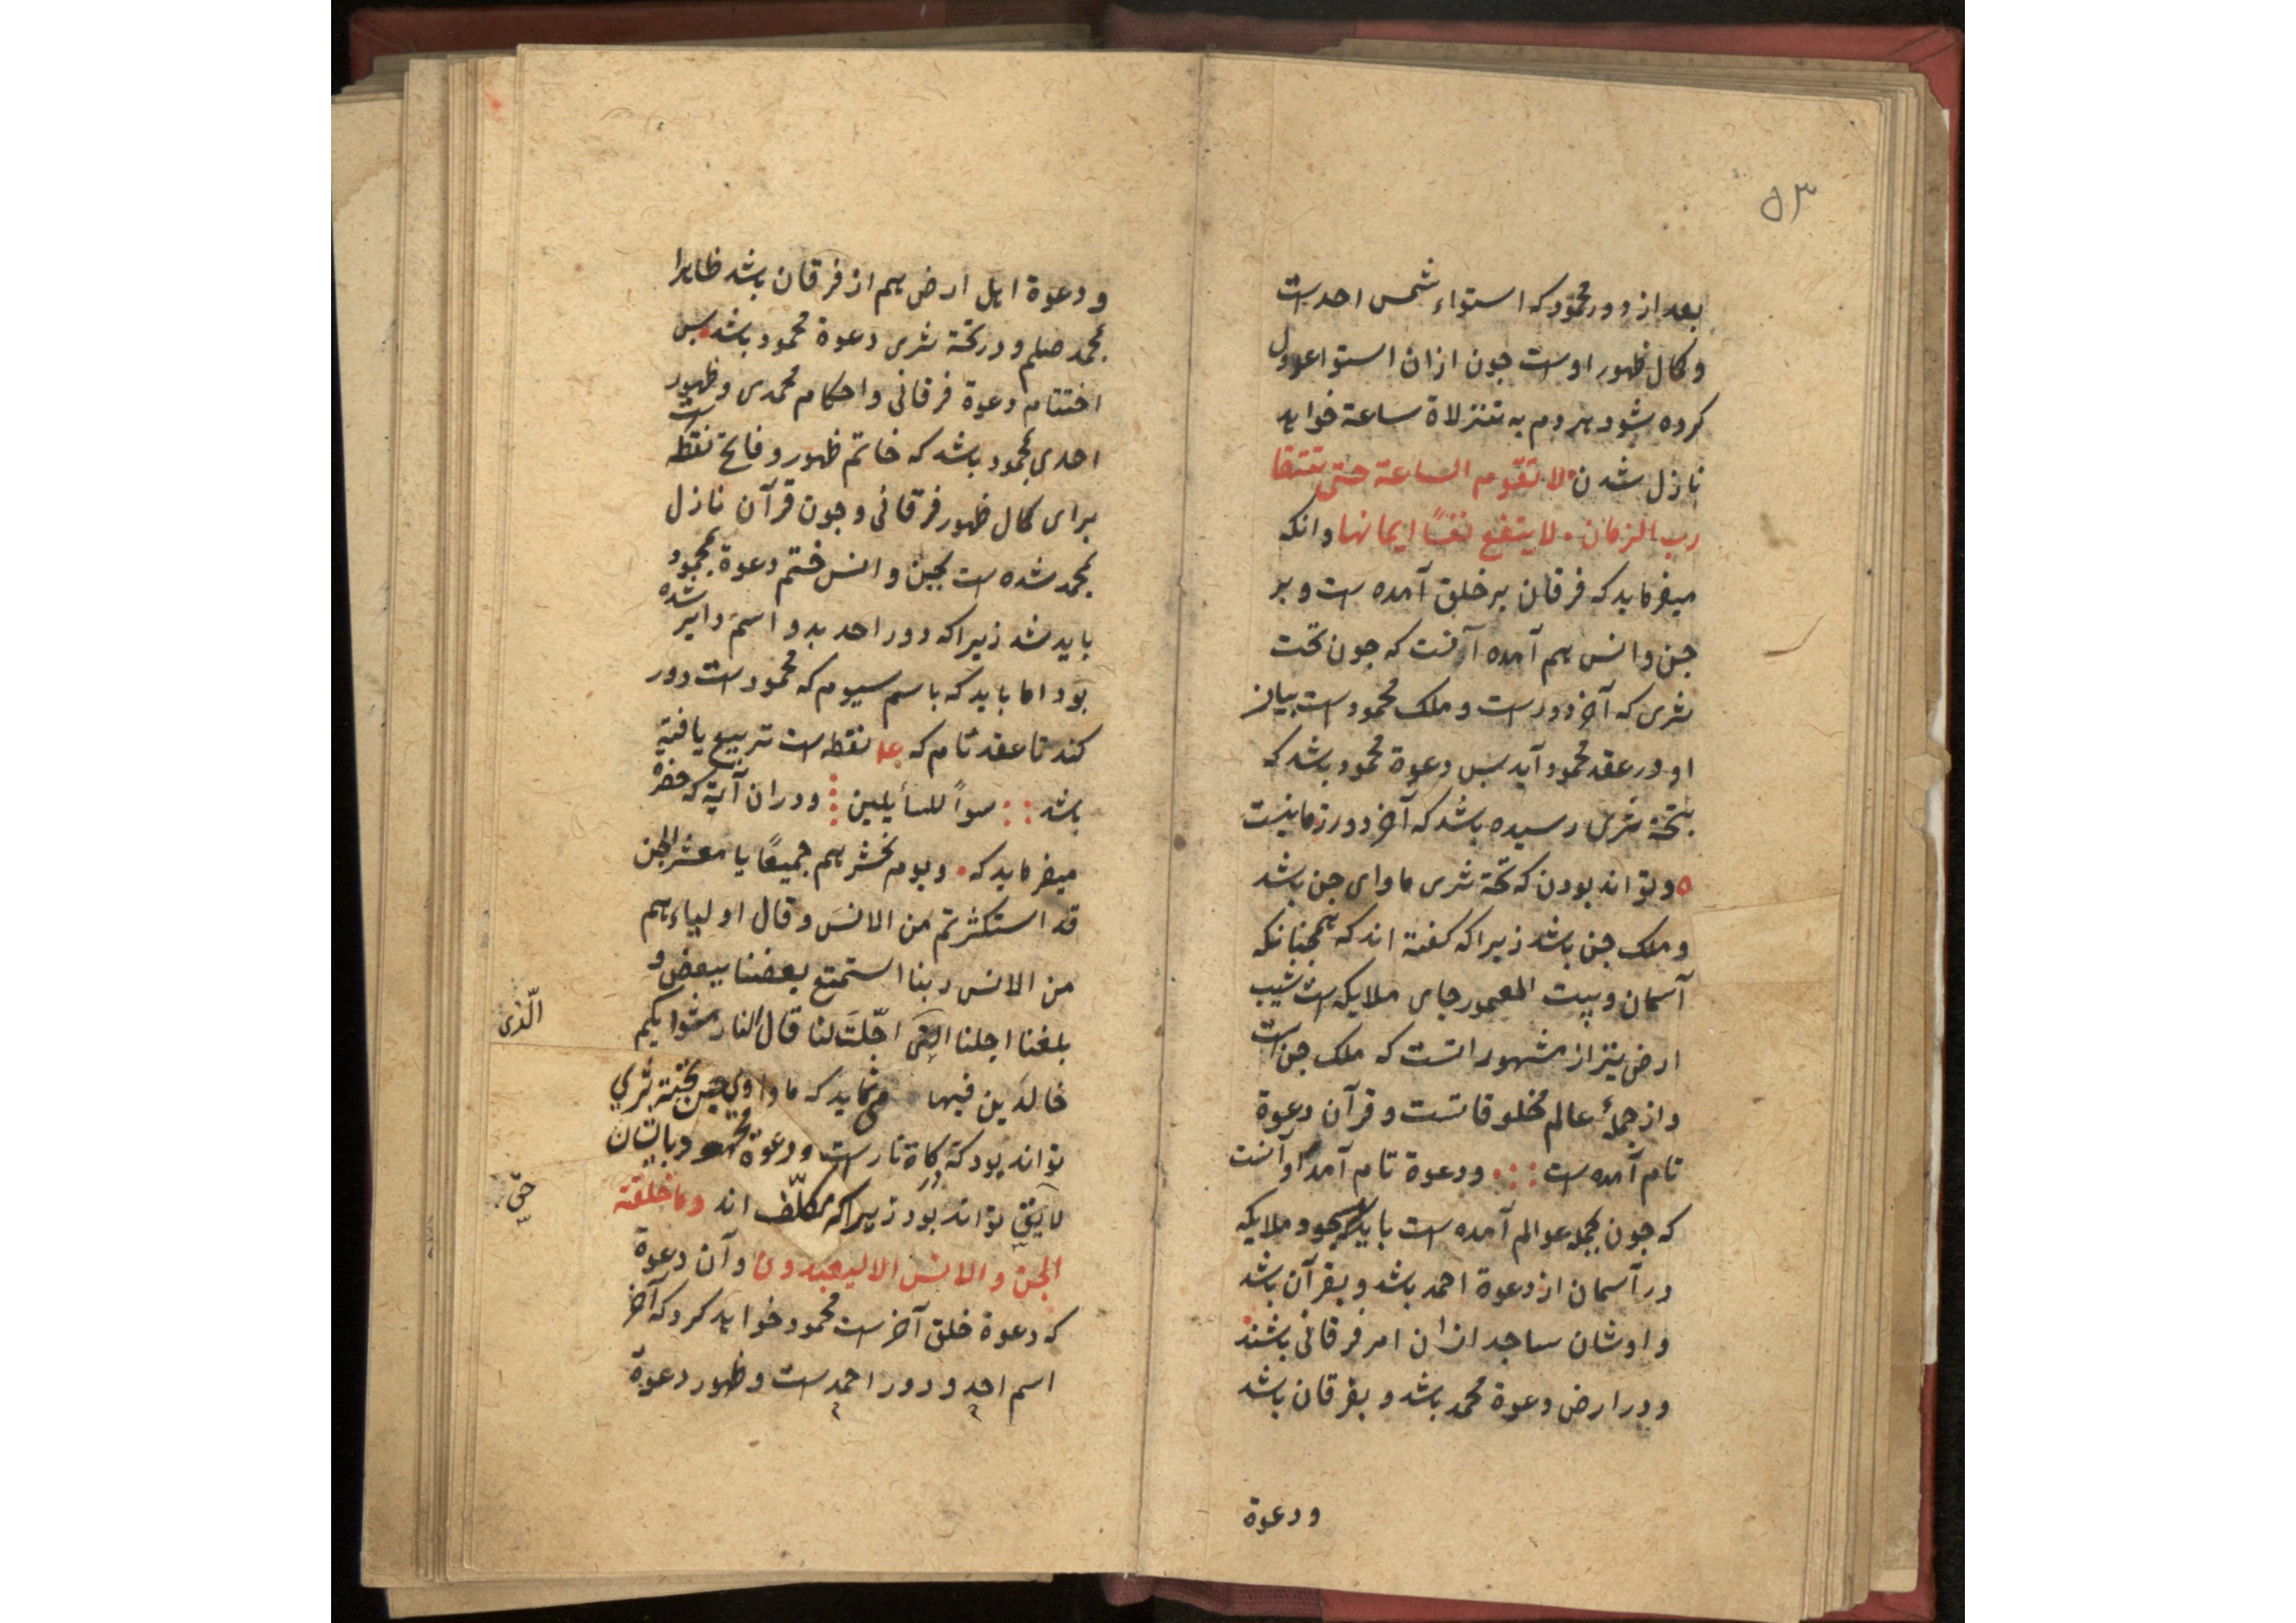 ۵۳
بعد از دور محمود که استواء شمس احدست
و کمال ظهور اوست جون ازان استوا عدول
کرده شود هر دم به تنزلاة ساعة خواهد
نازل شدن لا تقوم الساعة حتی
رب الزمان . لا ینفع نفسًا ایمانها وانکه
میفرماید که فرقان بر خلق آمده است و بر
جن و انس هم آمده آنست که جون تحت
ثری که آخر دورست و ملک محمودست بیان
او در عقد محمود آید بس دعوة محمود باشد که
بتحة ثری رسیده باشد که آخر دور زمانیست
o و تواند بودن که تحة ثری ماوای جن باشد
و ملک جن باشد زیراکه کفته اند که همجنانکه
آسمان و بیت المعمور جای ملایکه است شیب
ارض نیز از مشهور انست که ملک جن است
و از جملهٔ عالم مخلوقاتست و قرآن دعوة
تام آمده ست ::. و دعوة تام آمد او آنست
که جون بجمله عوالم آمده ست باید سجود ملایکه
در آسمان از دعوة احمد باشد و بقرآن باشد
و اوشان ساجد ازان امر فرقانی باشند
و در ارض دعوة محمد باشد و بفرقان باشد
و دعوة
و دعوة اهل ارض هم از فرقان باشد ظاهرا
بمحمد صلم و در تحة ثری دعوة محمود باشد . بس
اختتام دعوة فرقانی و احکام محمدی و ظهور
احدی بمحمود باشد که خاتم ظهور و فاتح نقطه ست
برای کمال ظهور فرقانی و جون قرآن نازل
بمحمد شده ست بجن و انس ختم دعوة بمحمود
باید شد زیراکه دور احد بدو اسم دایر شده
بود اما باید که باسم سیوم که محمودست دور
کند تا عقد تام که نقطه ست تربیع یافته
باشد :: سوأً للسأیلین ⁝ و دران آیة که حضره
میفرماید که . و یوم نحشرهم جمیعًا یا معشر الجن
قد استکثرتم من الانس و قال اولیاءهم
من الانس ربنا استمتع بعضنا ببعض و
بلغنا اجلنا اجّلت لنا قال النار مثوایکم
الّذی
خالدین فیها می نماید که ماوای جن بتحتة ثری
تواند بود که نارست و دعوة محمود بایشان
لایق تواند بود زیراکه مکلّف اند و ما خلقة
حتی
الجن و الانس الا لیعبدون و آن دعوة
که دعوة خلق آخرست محمود خواهد کرد که آخر
اسم احد و دور احمدست و ظهور دعوة